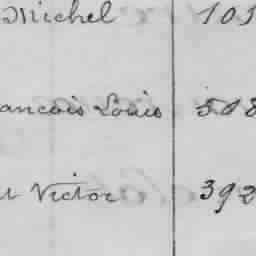 Michel 103
ancois Louis 508
Victor 392